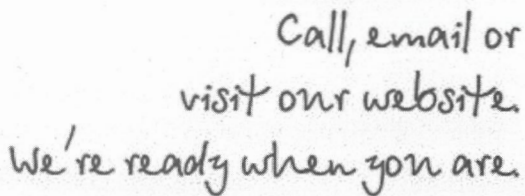 Call, email or
visit our website.
We're ready when you are.